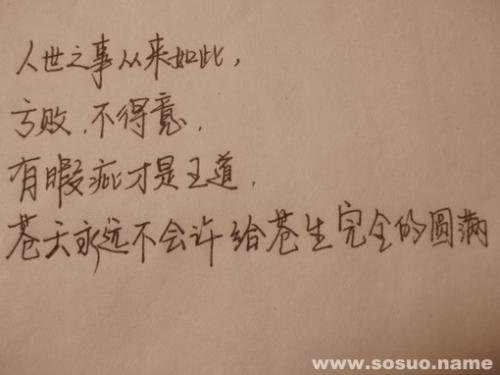 人世之事从来如此，
亏败、不得意，
有暇疵才是王道，
苍天永远不会许给苍生完全的圆满
www.sosuo.name